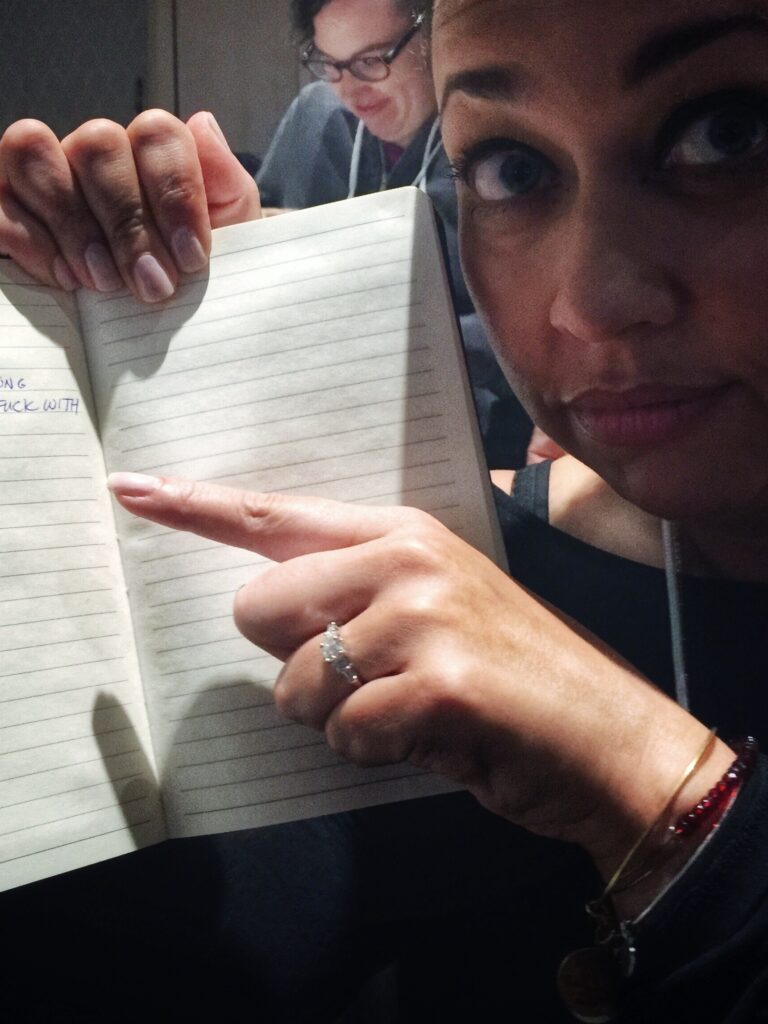 ONG
FUCK WITH